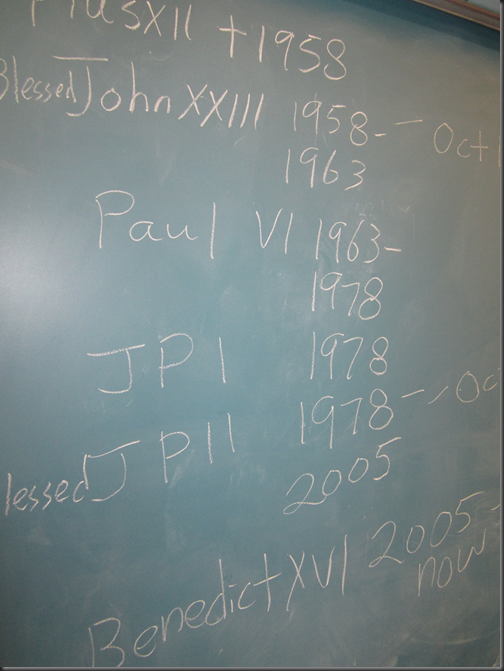 Pius XII + 1958
Blessed John XXIII 1958- — Oct
1963
Paul VI 1963-
1978
JPI 1978
lessed JPII 1978- — Oc
2005
Benedict XVI 2005-
now